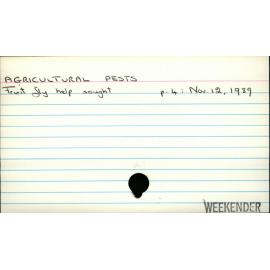 AGRICULTURAL PESTS
Fruit fly help sought p. 4 : Nov. 12, 1989
WEEKENDER